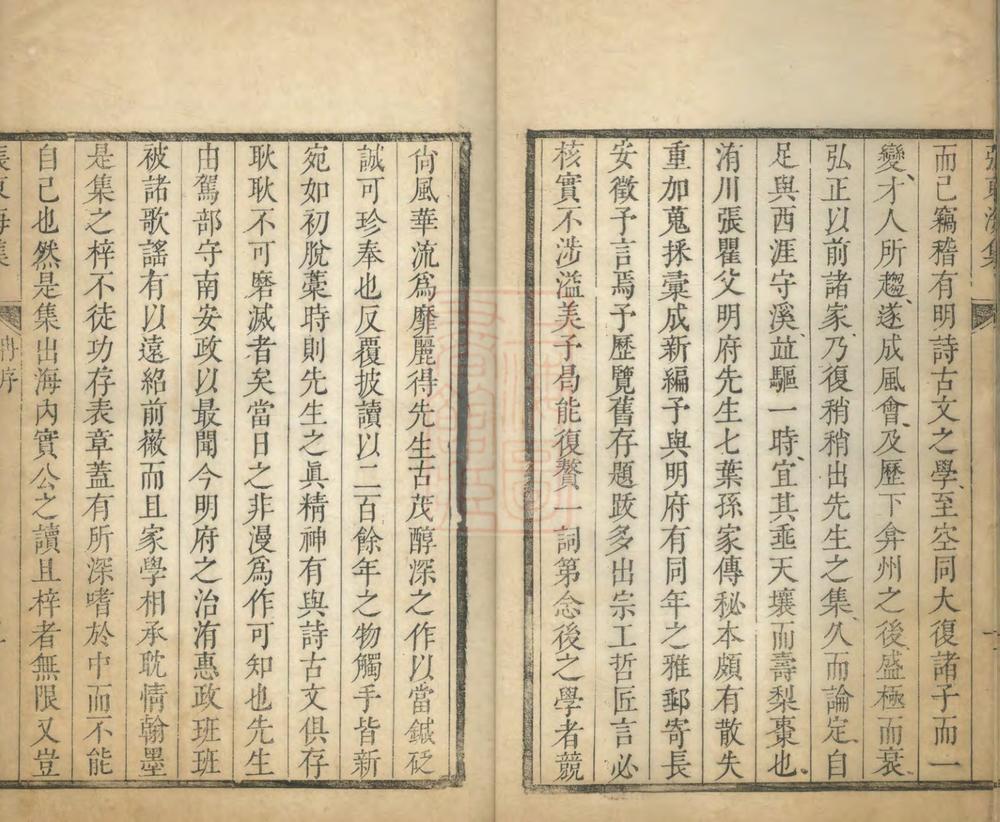 而已竊稽有明詩古文之學至空同大復諸子而一
變才人所趨遂成風會及歷下弇州之後盛極而衰
弘正以前諸家乃復稍稍出先生之集久而論定自
足與西涯守溪並驅一時宜其垂天壤而壽梨棗也
洧川張瞿父明府先生七葉孫家傳秘本頗有散失
重加蒐採彙成新編予與明府有同年之雅郵寄長
安徵予言焉予歷覽舊存題跋多出宗工哲匠言必
核實不涉溢美予曷能復贅一詞第念後之學者競
尚風華流為靡麗得先生古茂醇深之作以當鍼砭
誠可珍奉也反覆披讀以二百餘年之物觸手皆新
宛如初脫藁時則先生之眞精神有與詩古文俱存
耿耿不可磨滅者矣當日之非漫為作可知也先生
由駕部守南安政以最聞今明府之治洧惠政班班
被諸歌謠有以遠紹前徽而且家學相承耽情翰墨
是集之梓不徒功存表章蓋有所深嗜於中而不能
自已也然是集出海內實公之讀且梓者無限又豈
張東海集
序